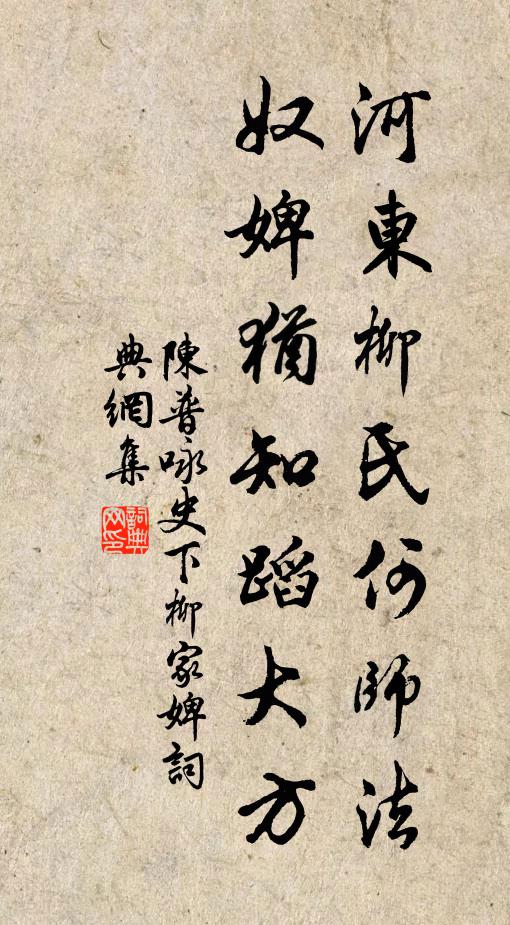 河東柳氏何師法
奴婢猶知蹈大方
陳普咏史下柳家婢詞
典網集
詞典網印